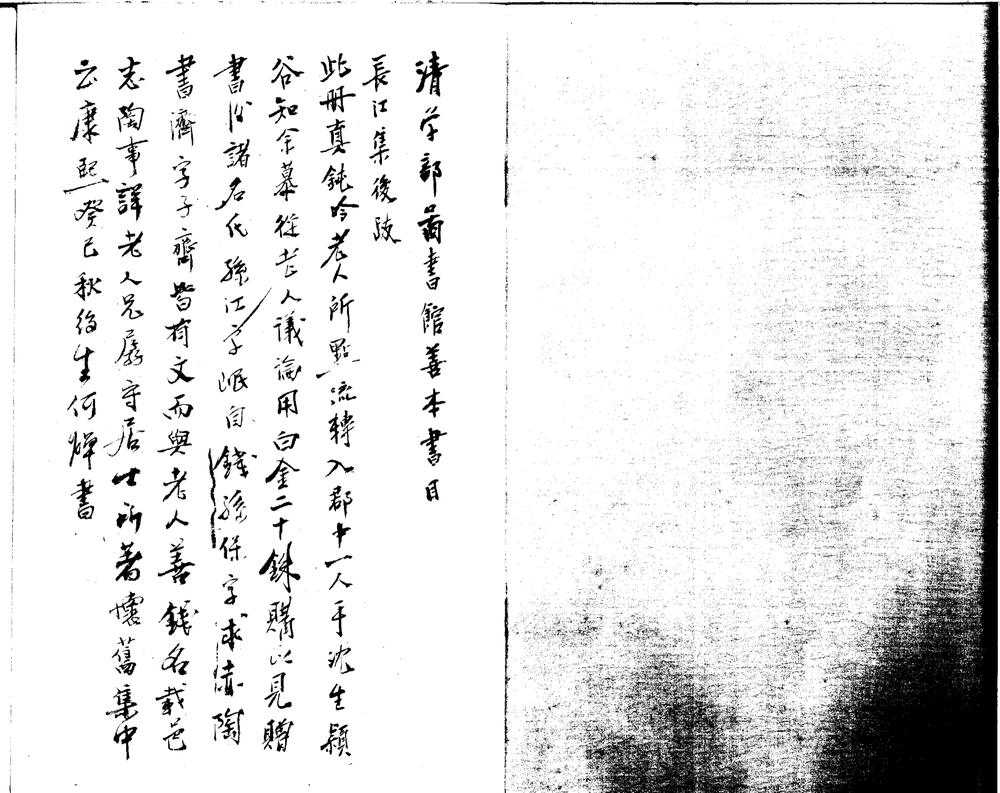 清学部圖書館善本書目
長江集後跋
此册真鈍吟老人所點流轉入郡中一人手沈生穎
谷知余慕從老人議論用白金二十銖購以見贈
書後諸名氏孫江字岷自錢孫保字求赤陶
書濟字子齊皆有文而與老人善錢名載邑
志陶事詳老人兄孱守居士所著懷舊集中
云康熙癸巳秋後生何焯書